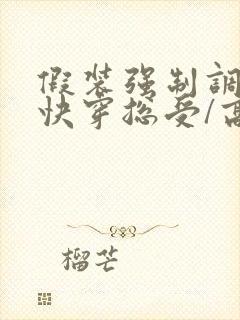 假装强制調
快穿总受/高
榴芒